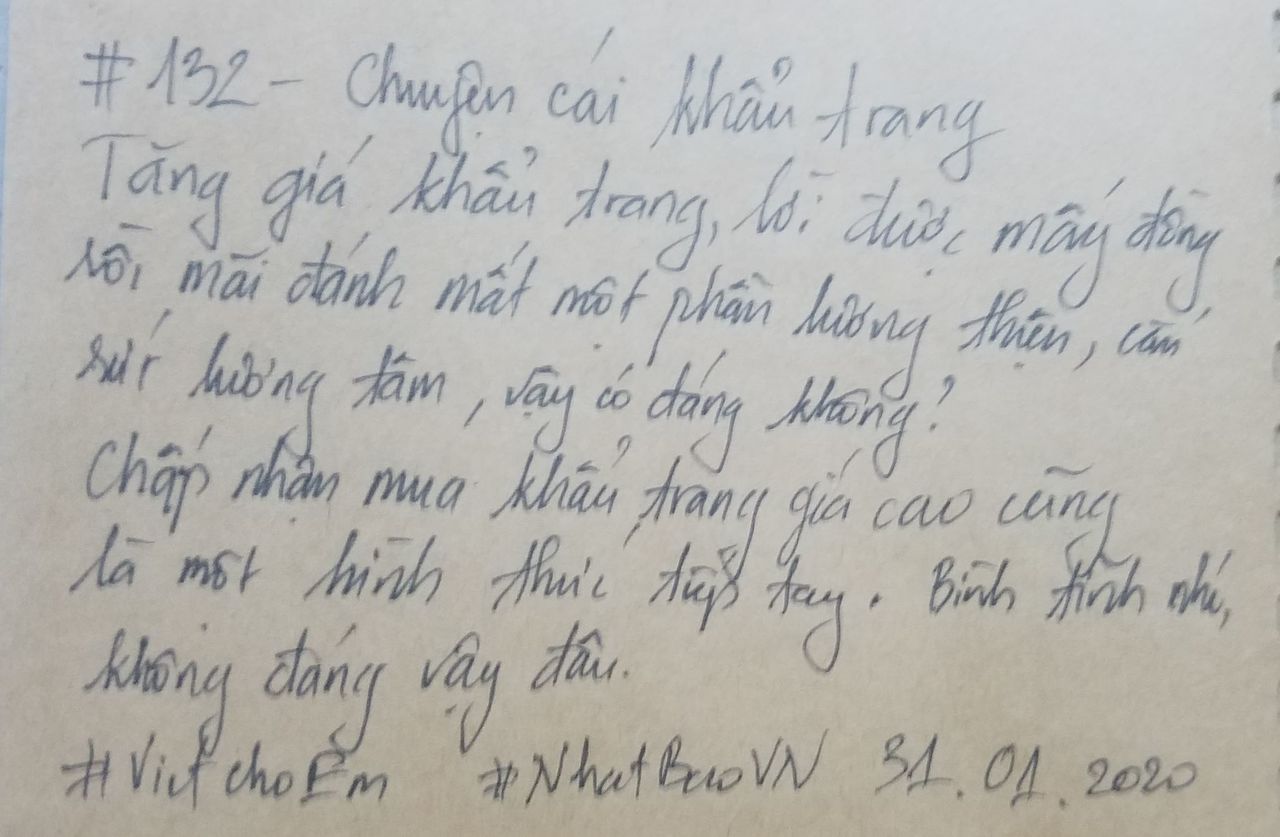 #132 - Chuyện cái khẩu trang
Tăng giá khẩu trang, lời được mấy đồng
rồi mãi đánh mất một phần lương thiện, cắn
rứt lương tâm, vậy có đáng không?
Chấp nhận mua khẩu trang giá cao cũng
là một hình thức tiếp tay. Bình tĩnh nhé,
không đáng vậy đâu.
#ViếtchoEm #NhatBaoVN 31.01.2020